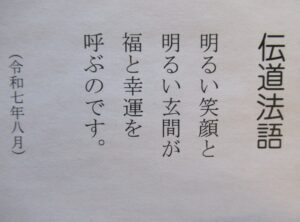 伝道法語
明るい笑顔と
明るい玄関が
福と幸運を
呼ぶのです。
(令和七年八月)